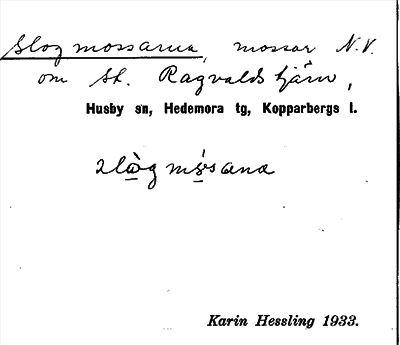 Slogmossarna, mossar N.V.
om St. Ragvaldstjärn,
Husby sn, Hedemora tg, Kopparbergs l.
slòg mósana
Karin Hessling 1933.